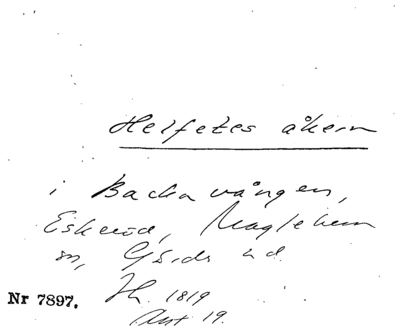 Helfetes åkern
i Backa vången,
Eskeröd, Maglehem
sn, Gärds hd.
Nr 7897. Jb. 1819
Akt 19.